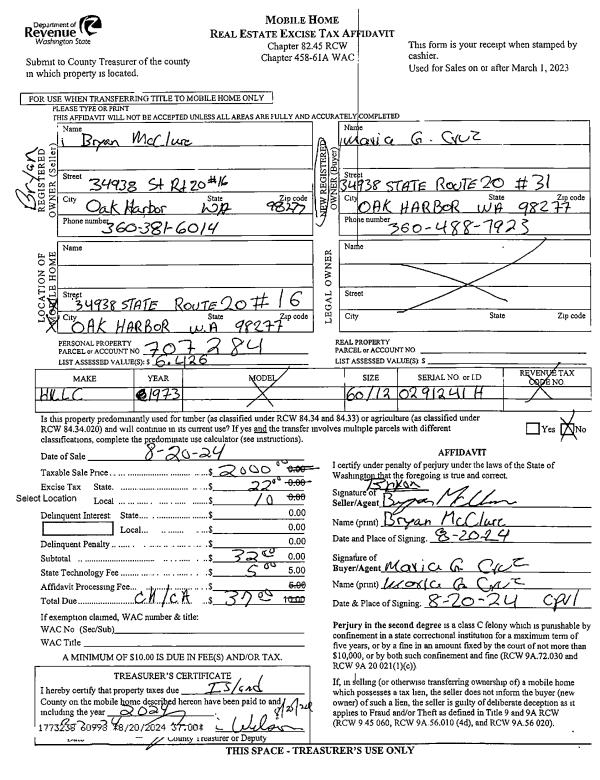 Department of
Revenue
Washington State
Submit to County Treasurer of the county
in which property is located.
MOBILE HOME
REAL ESTATE EXCISE TAX AFFIDAVIT
Chapter 82.45 RCW
Chapter 458-61A WAC
This form is your receipt when stamped by
cashier.
Used for Sales on or after March 1, 2023
FOR USE WHEN TRANSFERRING TITLE TO MOBILE HOME ONLY
PLEASE TYPE OR PRINT
THIS AFFIDAVIT WILL NOT BE ACCEPTED UNLESS ALL AREAS ARE FULLY AND ACCURATELY COMPLETED
Bryan
REGISTERED OWNER (Seller)
Name
Bryan McClure
Street
34938 St Rt 20 #16
City State Zip code
Oak Harbor WA 98277
Phone number
360-381-6014
NEW REGISTERED OWNER (Buyer)
Name
Maria G. Cruz
Street
34938 STATE ROUTE 20 #31
City State Zip code
OAK HARBOR WA 98277
Phone number
360-488-7923
LOCATION OF MOBILE HOME
Name
Street
34938 STATE ROUTE 20 # 16
City State Zip code
OAK HARBOR W.A 98277
LEGAL OWNER
Name
Street
City State Zip code
PERSONAL PROPERTY
PARCEL or ACCOUNT NO 707284
LIST ASSESSED VALUE(S): $ 6.426
REAL PROPERTY
PARCEL or ACCOUNT NO.
LIST ASSESSED VALUE(S): $
MAKE YEAR MODEL SIZE SERIAL NO. or I.D REVENUE TAX CODE NO.
HLLC 1973 60/12 0291241 H
Is this property predominantly used for timber (as classified under RCW 84.34 and 84.33) or agriculture (as classified under
RCW 84.34.020) and will continue in its current use? If yes and the transfer involves multiple parcels with different
classifications, complete the predominate use calculator (see instructions).
Yes No
Date of Sale 8-20-24
Taxable Sale Price $ 2000 00 0.00
Excise Tax State $ 22 00 0.00
Select Location Local $ 10 0.00
Delinquent Interest State $ 0.00
Local $ 0.00
Delinquent Penalty $ 0.00
Subtotal $ 32 00 0.00
State Technology Fee $ 5 00 5.00
Affidavit Processing Fee $ 5.00
Total Due CH/CA $ 37 00 10.00
If exemption claimed, WAC number & title:
WAC No (Sec/Sub)
WAC Title
A MINIMUM OF $10.00 IS DUE IN FEE(S) AND/OR TAX.
AFFIDAVIT
I certify under penalty of perjury under the laws of the State of
Washington that the foregoing is true and correct.
Signature of
Seller/Agent Bryan McClure
Name (print) Bryan McClure
Date and Place of Signing. 8-20-24
Signature of
Buyer/Agent Maria G. Cruz
Name (print) Maria G Cruz
Date & Place of Signing. 8-20-24 CPVL
Perjury in the second degree is a class C felony which is punishable by
confinement in a state correctional institution for a maximum term of
five years, or by a fine in an amount fixed by the court of not more than
$10,000, or by both such confinement and fine (RCW 9A.72.030 and
RCW 9A 20 021(1)(c)).
If, in selling (or otherwise transferring ownership of) a mobile home
which possesses a tax lien, the seller does not inform the buyer (new
owner) of such a lien, the seller is guilty of deliberate deception as it
applies to Fraud and/or Theft as defined in Title 9 and 9A RCW
(RCW 9 45 060, RCW 9A.56.010 (4d), and RCW 9A.56 020).
TREASURER'S CERTIFICATE
I hereby certify that property taxes due Island
County on the mobile home described hereon have been paid to and
including the year 2024 8/20/24
1773238 60998 8/20/2024 37.00
Date County Treasurer or Deputy
THIS SPACE - TREASURER'S USE ONLY